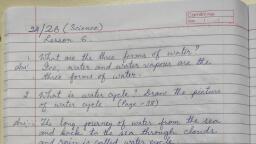 2A/2B (Science)
Lesson 6
1. What are the three forms of water?
Ans: Ice, water and water vapour are the
three forms of water.
2. What is water cycle? Draw the picture
of water cycle. (Page-38)
Ans:- The long journey of water from the sea
and back to the sea through clouds
and rain is called water cycle.